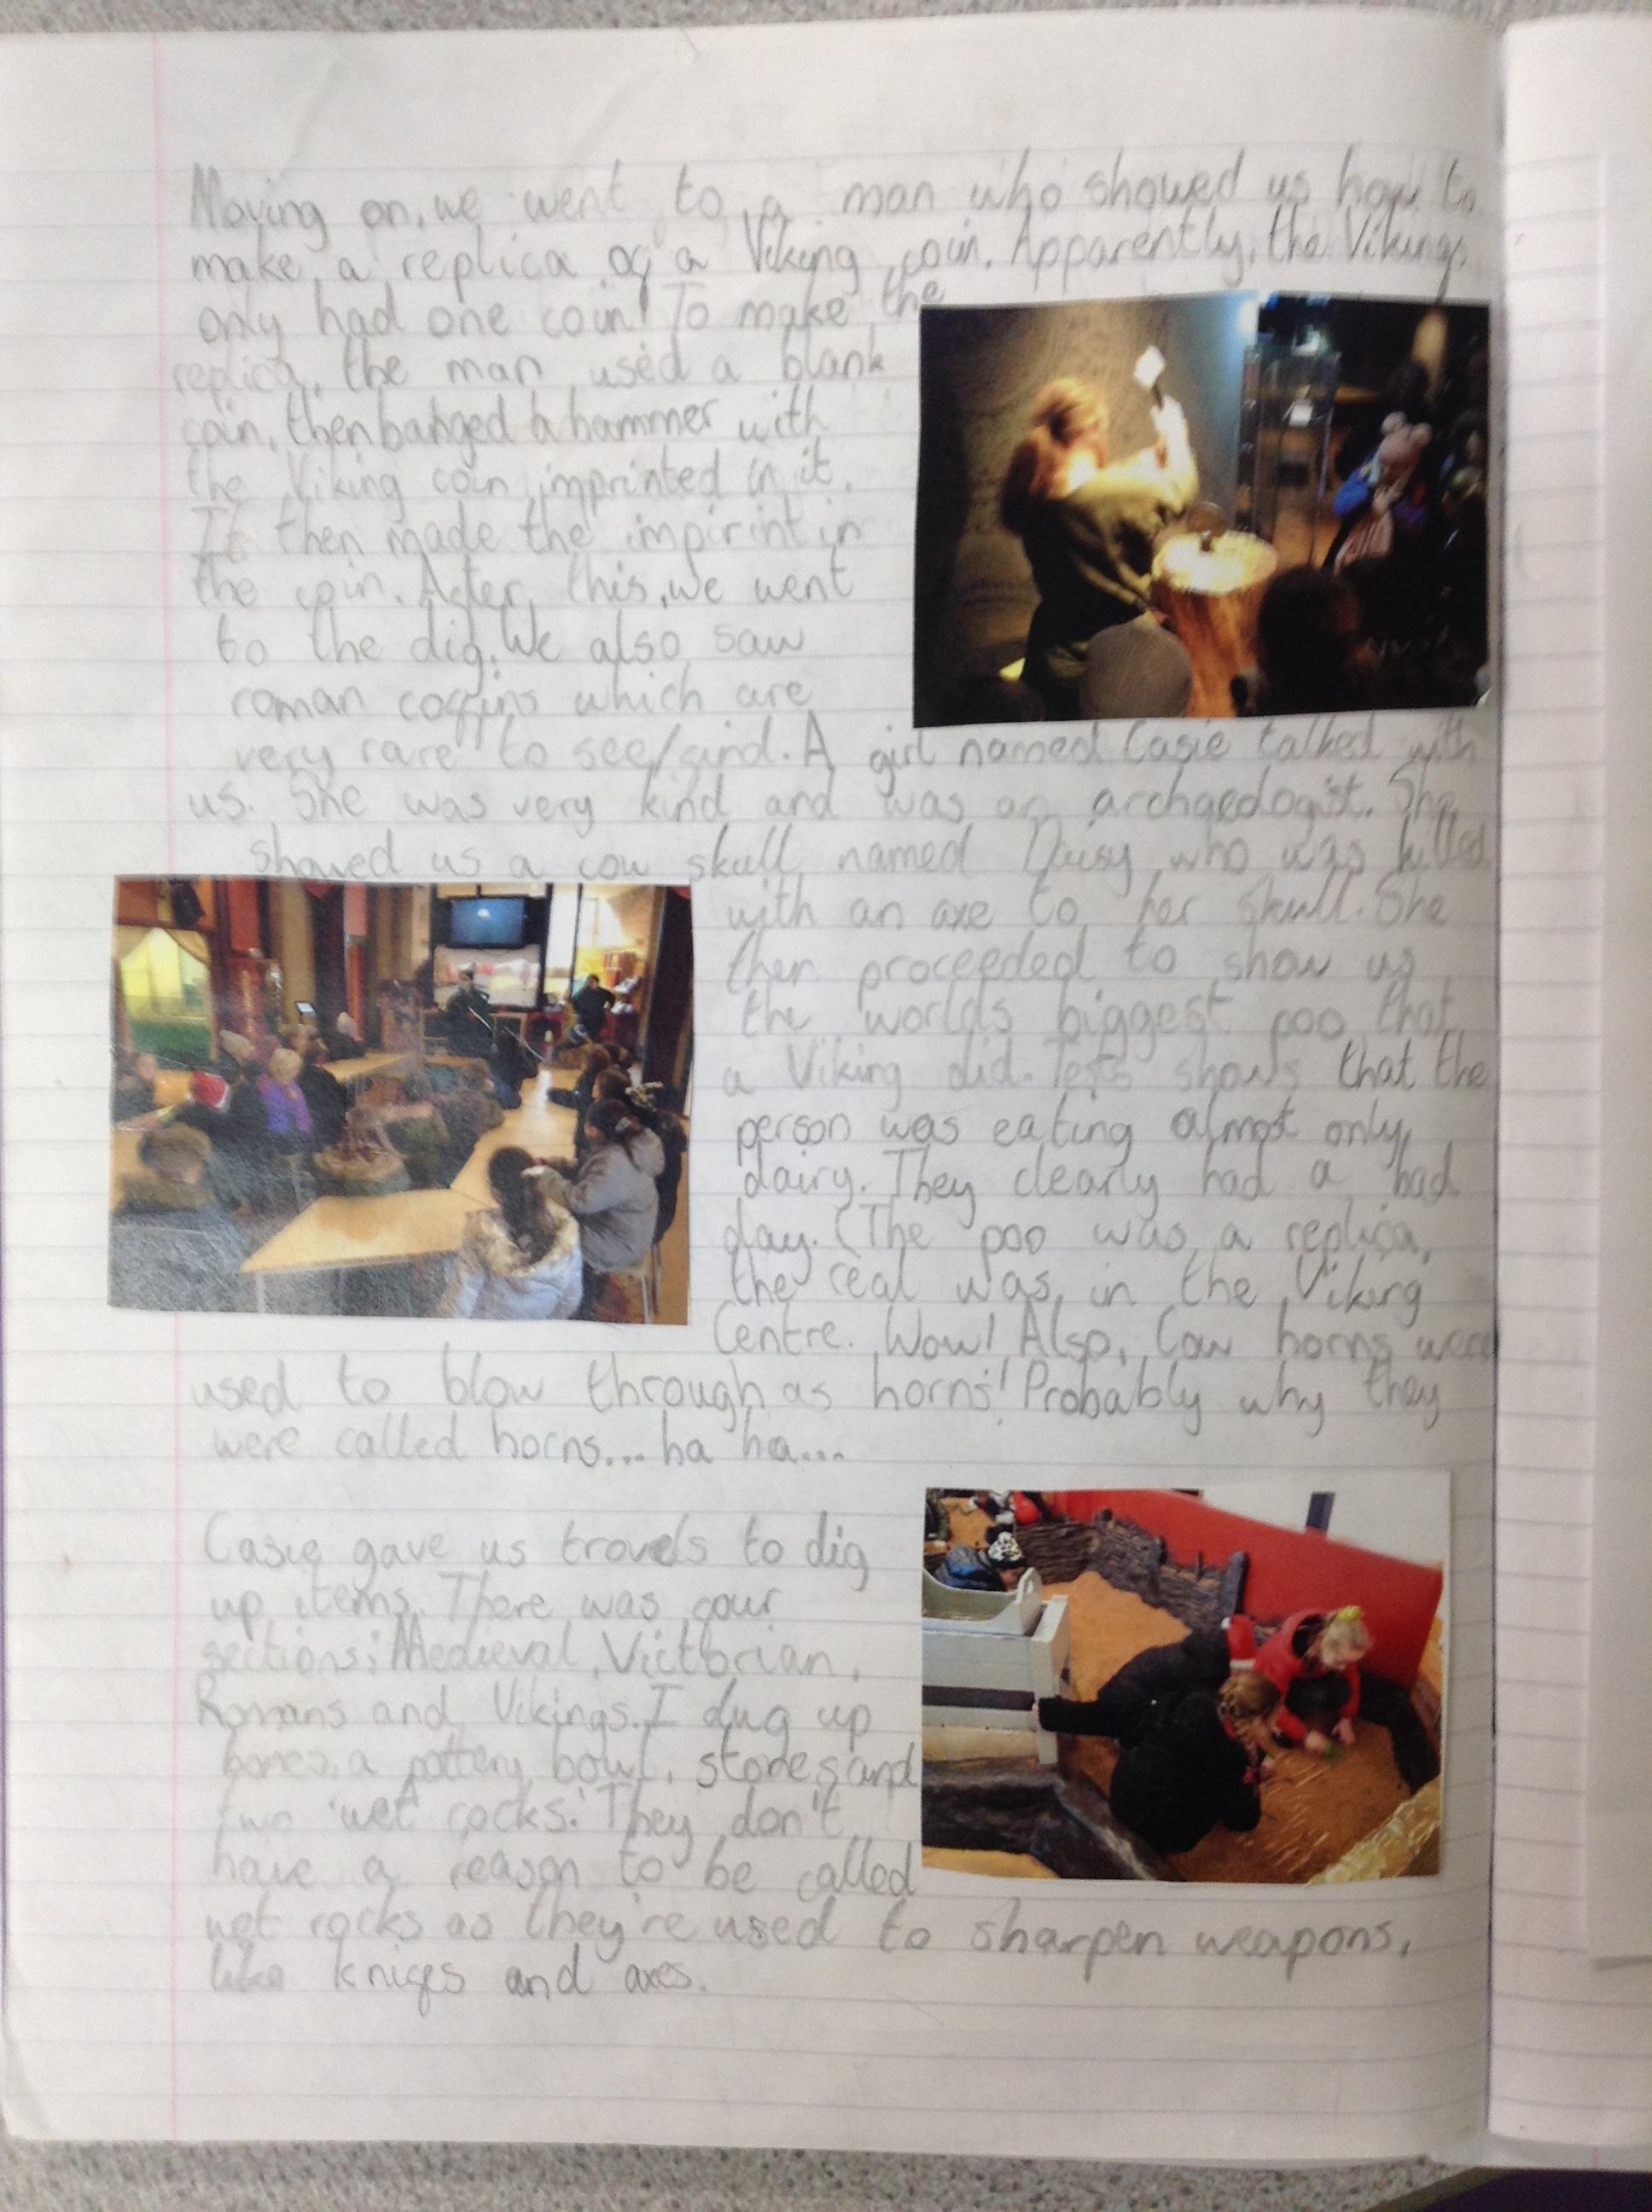 Moving on, we went to a man who showed us how to
make a replica of a Viking coin. Apparently, the Vikings
only had one coin! To make the
replica, the man used a blank
coin, then banged a hammer with
the Viking coin imprinted in it.
It then made the impirint in
the coin. After this, we went
to the dig. We also saw
roman coffins which are
very rare to see/find. A girl named Casie talked with
us. She was very kind and was an archaeologist. She
showed us a cow skull named Daisy who was killed
with an axe to her skull. She
then proceeded to show us
the worlds biggest poo that
a Viking did. Tests shows that the
person was eating almost only
dairy. They clearly had a bad
day. (The poo was a replica,
the real was in the Viking
Centre. Wow! Also, Cow horns were
used to blow through as horns! Probably why they
were called horns... ha ha...
Casie gave us trowels to dig
up items. There was four
sections; Medieval, Victorian,
Romans and Vikings. I dug up
bones, a pottery bowl, stones and
two 'wet rocks.' They don't
have a reason to be called
wet rocks as they're used to sharpen weapons,
like knifes and axes.